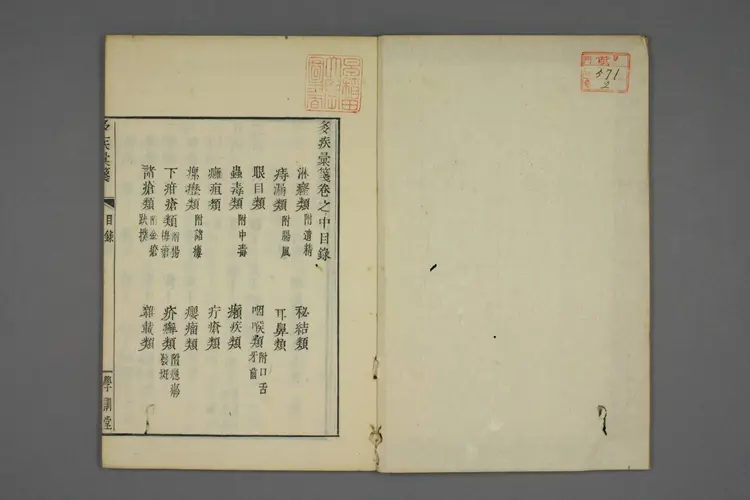 㚇疾彙箋卷之中目錄
淋癃類 附遺精
秘結類
痔漏類 附腸風
耳鼻類
眼目類
咽喉類 附口舌牙齒
蟲毒類 附中毒
癩疾類
癰疽類
疔瘡類
瘰癧類 附諸瘻
癭瘤類
下疳瘡類
疥癬類
諸瘡類 附金瘡跌撲
雜載類
疾彙箋
目錄
學訓堂
早稻田大學圖書
571
2